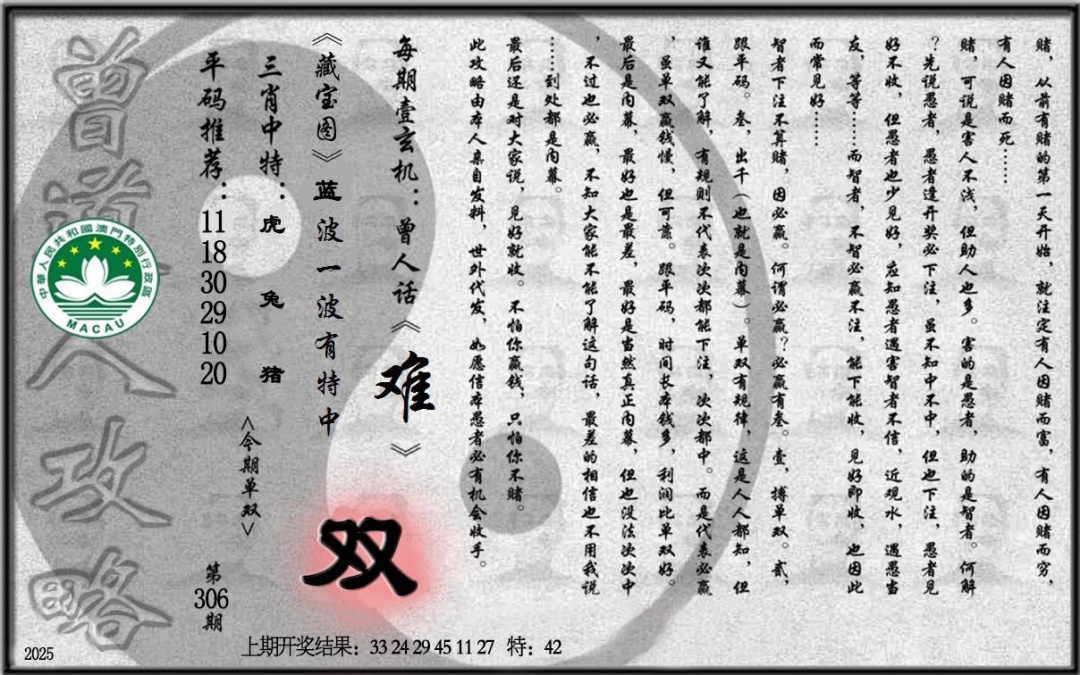 赌，从前有赌的第一天开始，就注定有人因赌而富，有人因赌而穷，
有人因赌而死……
赌，可说是害人不浅，但助人也多。害的是愚者，助的是智者。何解
？先说愚者，愚者逢开奖必下注，虽不知中不中，但也下注，愚者见
好不收，但愚者也少见好，应知愚者遇害智者不信，近观水，遇愚当
友，等等……而智者，不智必赢不注，能下能收，见好即收，也因此
而常见好……
智者下注不算赌，因必赢。何谓必赢？必赢有叁。壹，搏单双。贰，
跟平码。叁，出千（也就是内幕）。单双有规律，这是人人都知，但
谁又能了解，有规则不代表次次都能下注，次次都中。而是代表必赢
，虽单双赢钱慢，但可靠。跟平码，时间长本钱多，利润比单双好。
最后是内幕，最好也是最差，最好是当然真正内幕，但也没法次次中
，不过也必赢，不知大家能不能了解这句话，最差的相信也不用我说
……到处都是内幕。
最后还是对大家说，见好就收。不怕你赢钱，只怕你不赌。
此攻略由本人亲自发料，世外代发，如愿信本愚者必有机会收手。
每期壹玄机：曾人话《难》
《藏宝图》蓝波一波有特中
双
三肖中特：虎兔猪
<今期单双>
平码推荐：11 18 30 29 10 20
第306期
曾道人攻略
中華人民共和國澳門特別行政區
MACAU
2025
上期开奖结果：33 24 29 45 11 27 特：42